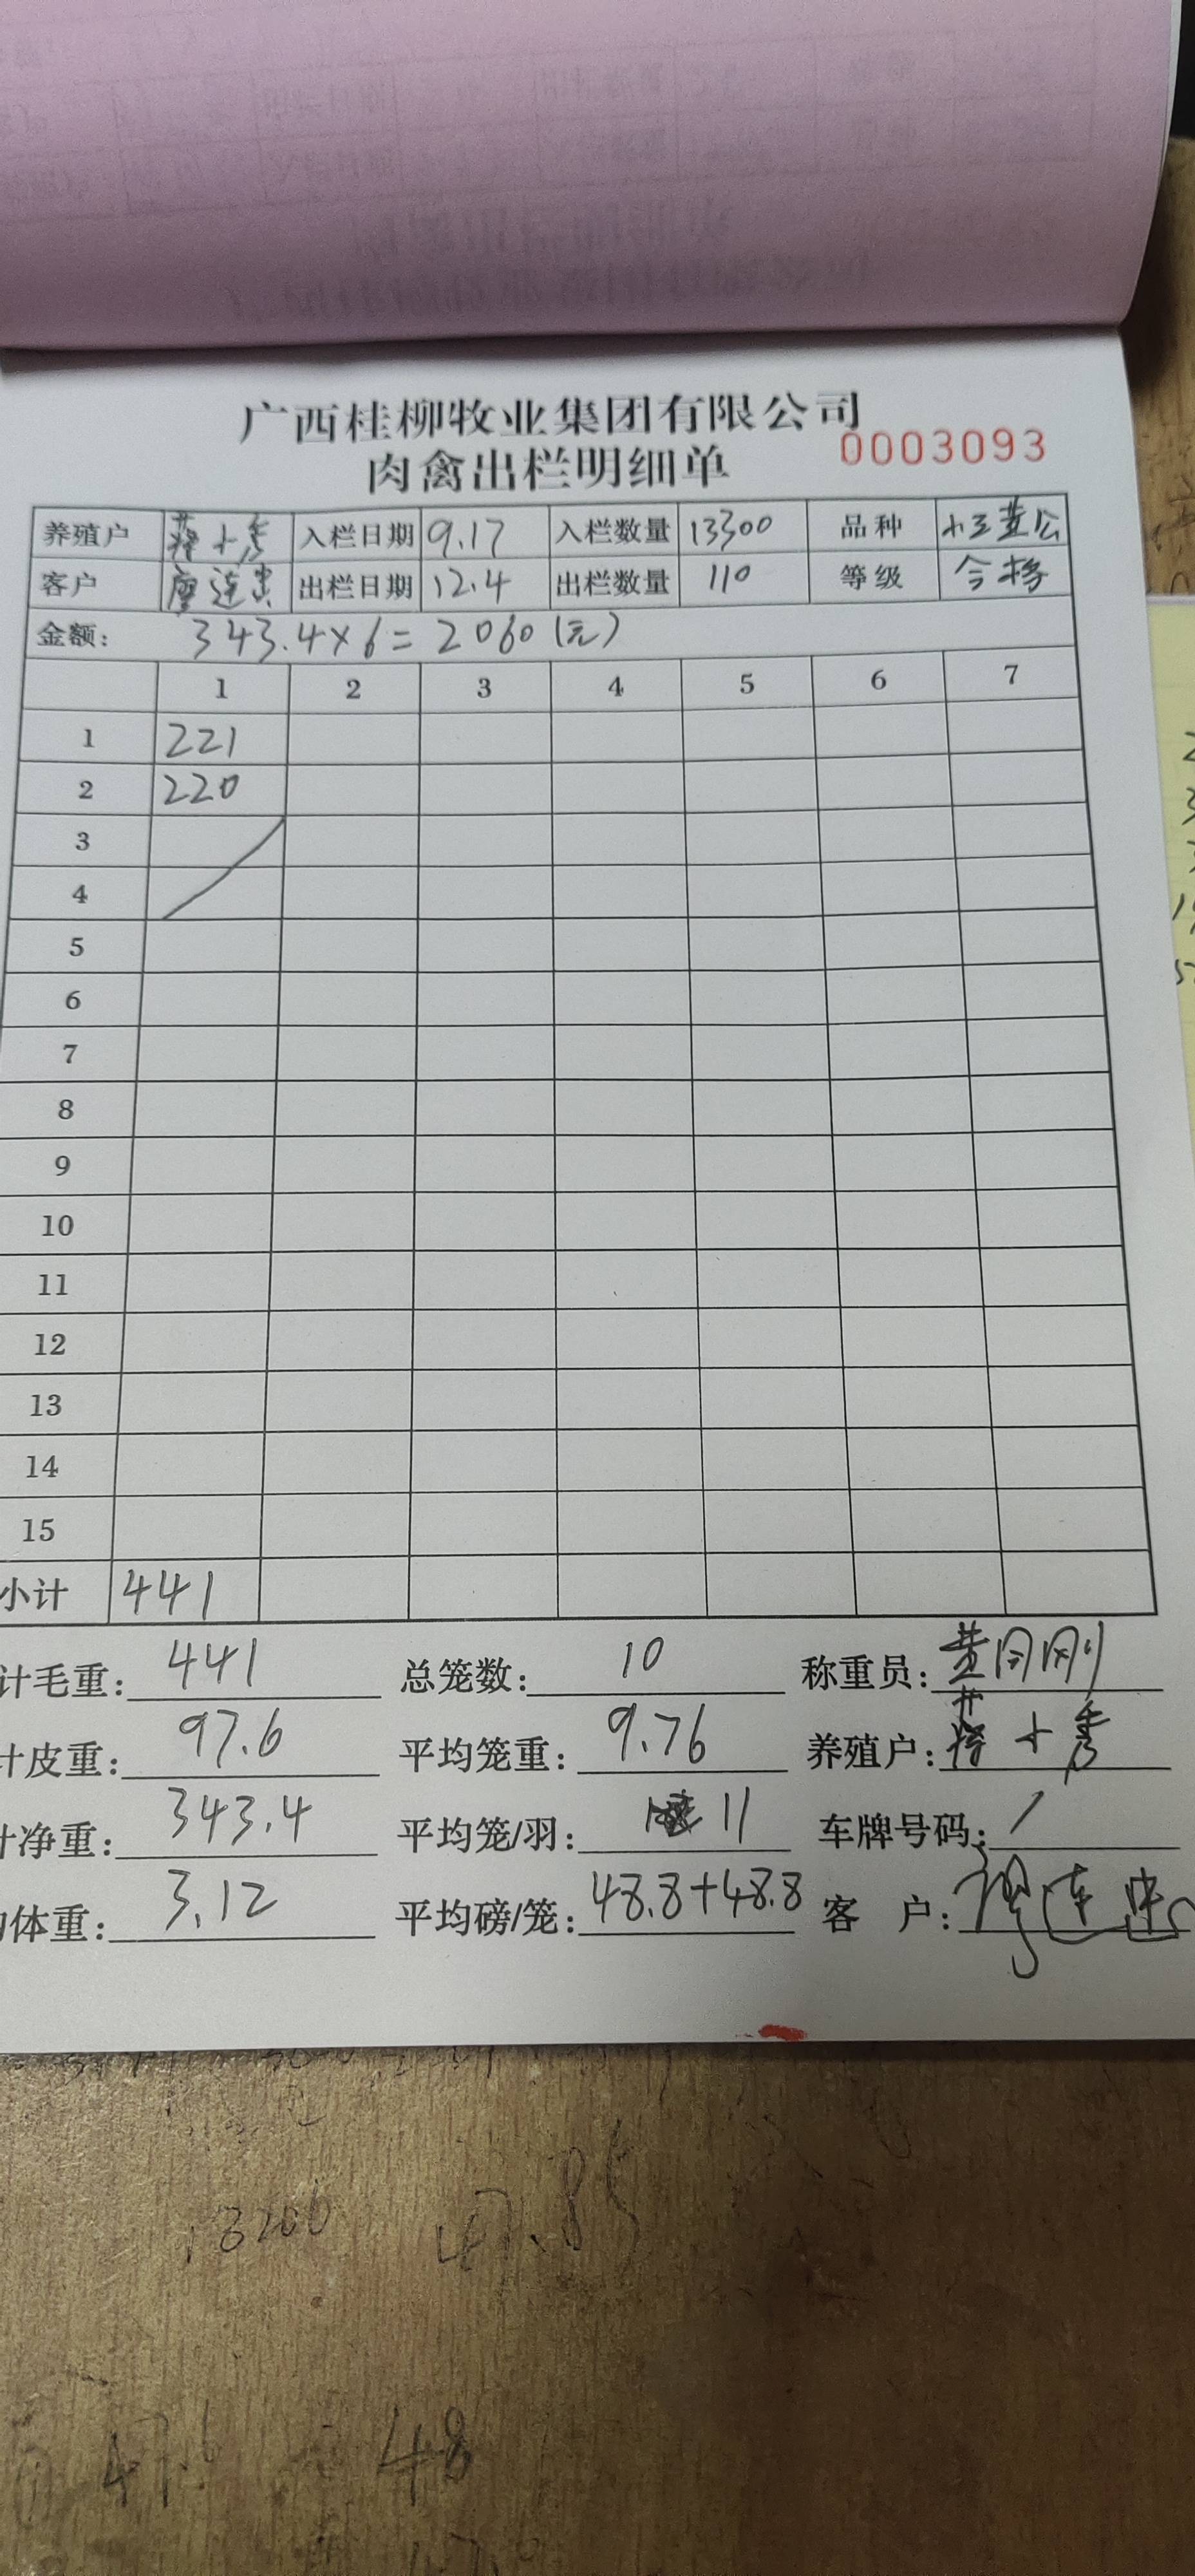 广西桂柳牧业集团有限公司
肉禽出栏明细单 0003093
养殖户 蒋十秀 入栏日期 9.17 入栏数量 13300 品种 小三黄公
客户 廖连忠 出栏日期 12.4 出栏数量 110 等级 合格
金额: 343.4×6=2060(元)
1 2 3 4 5 6 7
1 221
2 220
3
4
5
6
7
8
9
10
11
12
13
14
15
小计 441
计毛重: 441 总笼数: 10 称重员: 黄冈刚
计皮重: 97.6 平均笼重: 9.76 养殖户: 蒋十秀
计净重: 343.4 平均笼/羽: 11 车牌号码: /
均体重: 3.12 平均磅/笼: 48.8+48.8 客 户: 廖连忠
47.85
48